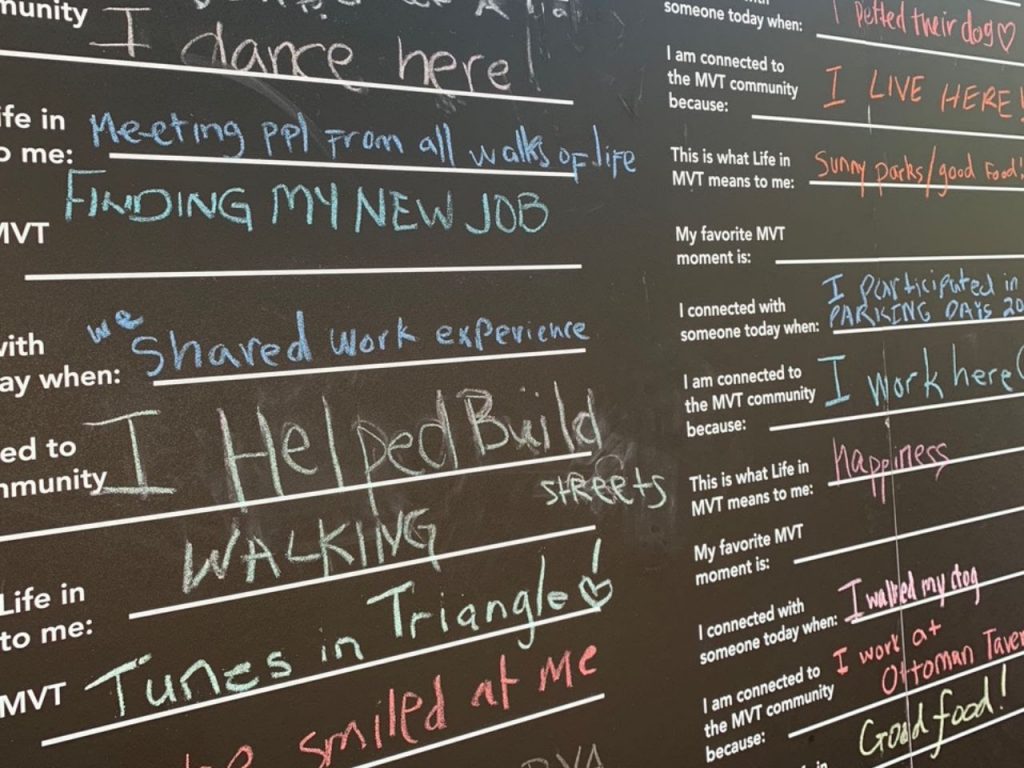 munity
I dance here!
ife in
o me:
Meeting ppl from all walks of life
MVT
FINDING MY NEW JOB
with
ay when:
we shared work experience
ed to
mmunity
I Helped Build
streets
Life in
to me:
WALKING
MVT
Tunes in Triangle!
smiled at me
someone today when:
I petted their dog♡
I am connected to
the MVT community
because:
I LIVE HERE!
This is what Life in
MVT means to me:
Sunny parks/good food!
My favorite MVT
moment is:
I connected with
someone today when:
I participated in
PARKING DAYS 20
I am connected to
the MVT community
because:
I work here
This is what Life in
MVT means to me:
Happiness
My favorite MVT
moment is:
I connected with
someone today when:
I walked my dog
I am connected to
the MVT community
because:
I work at
Ottoman Taver
Good food!